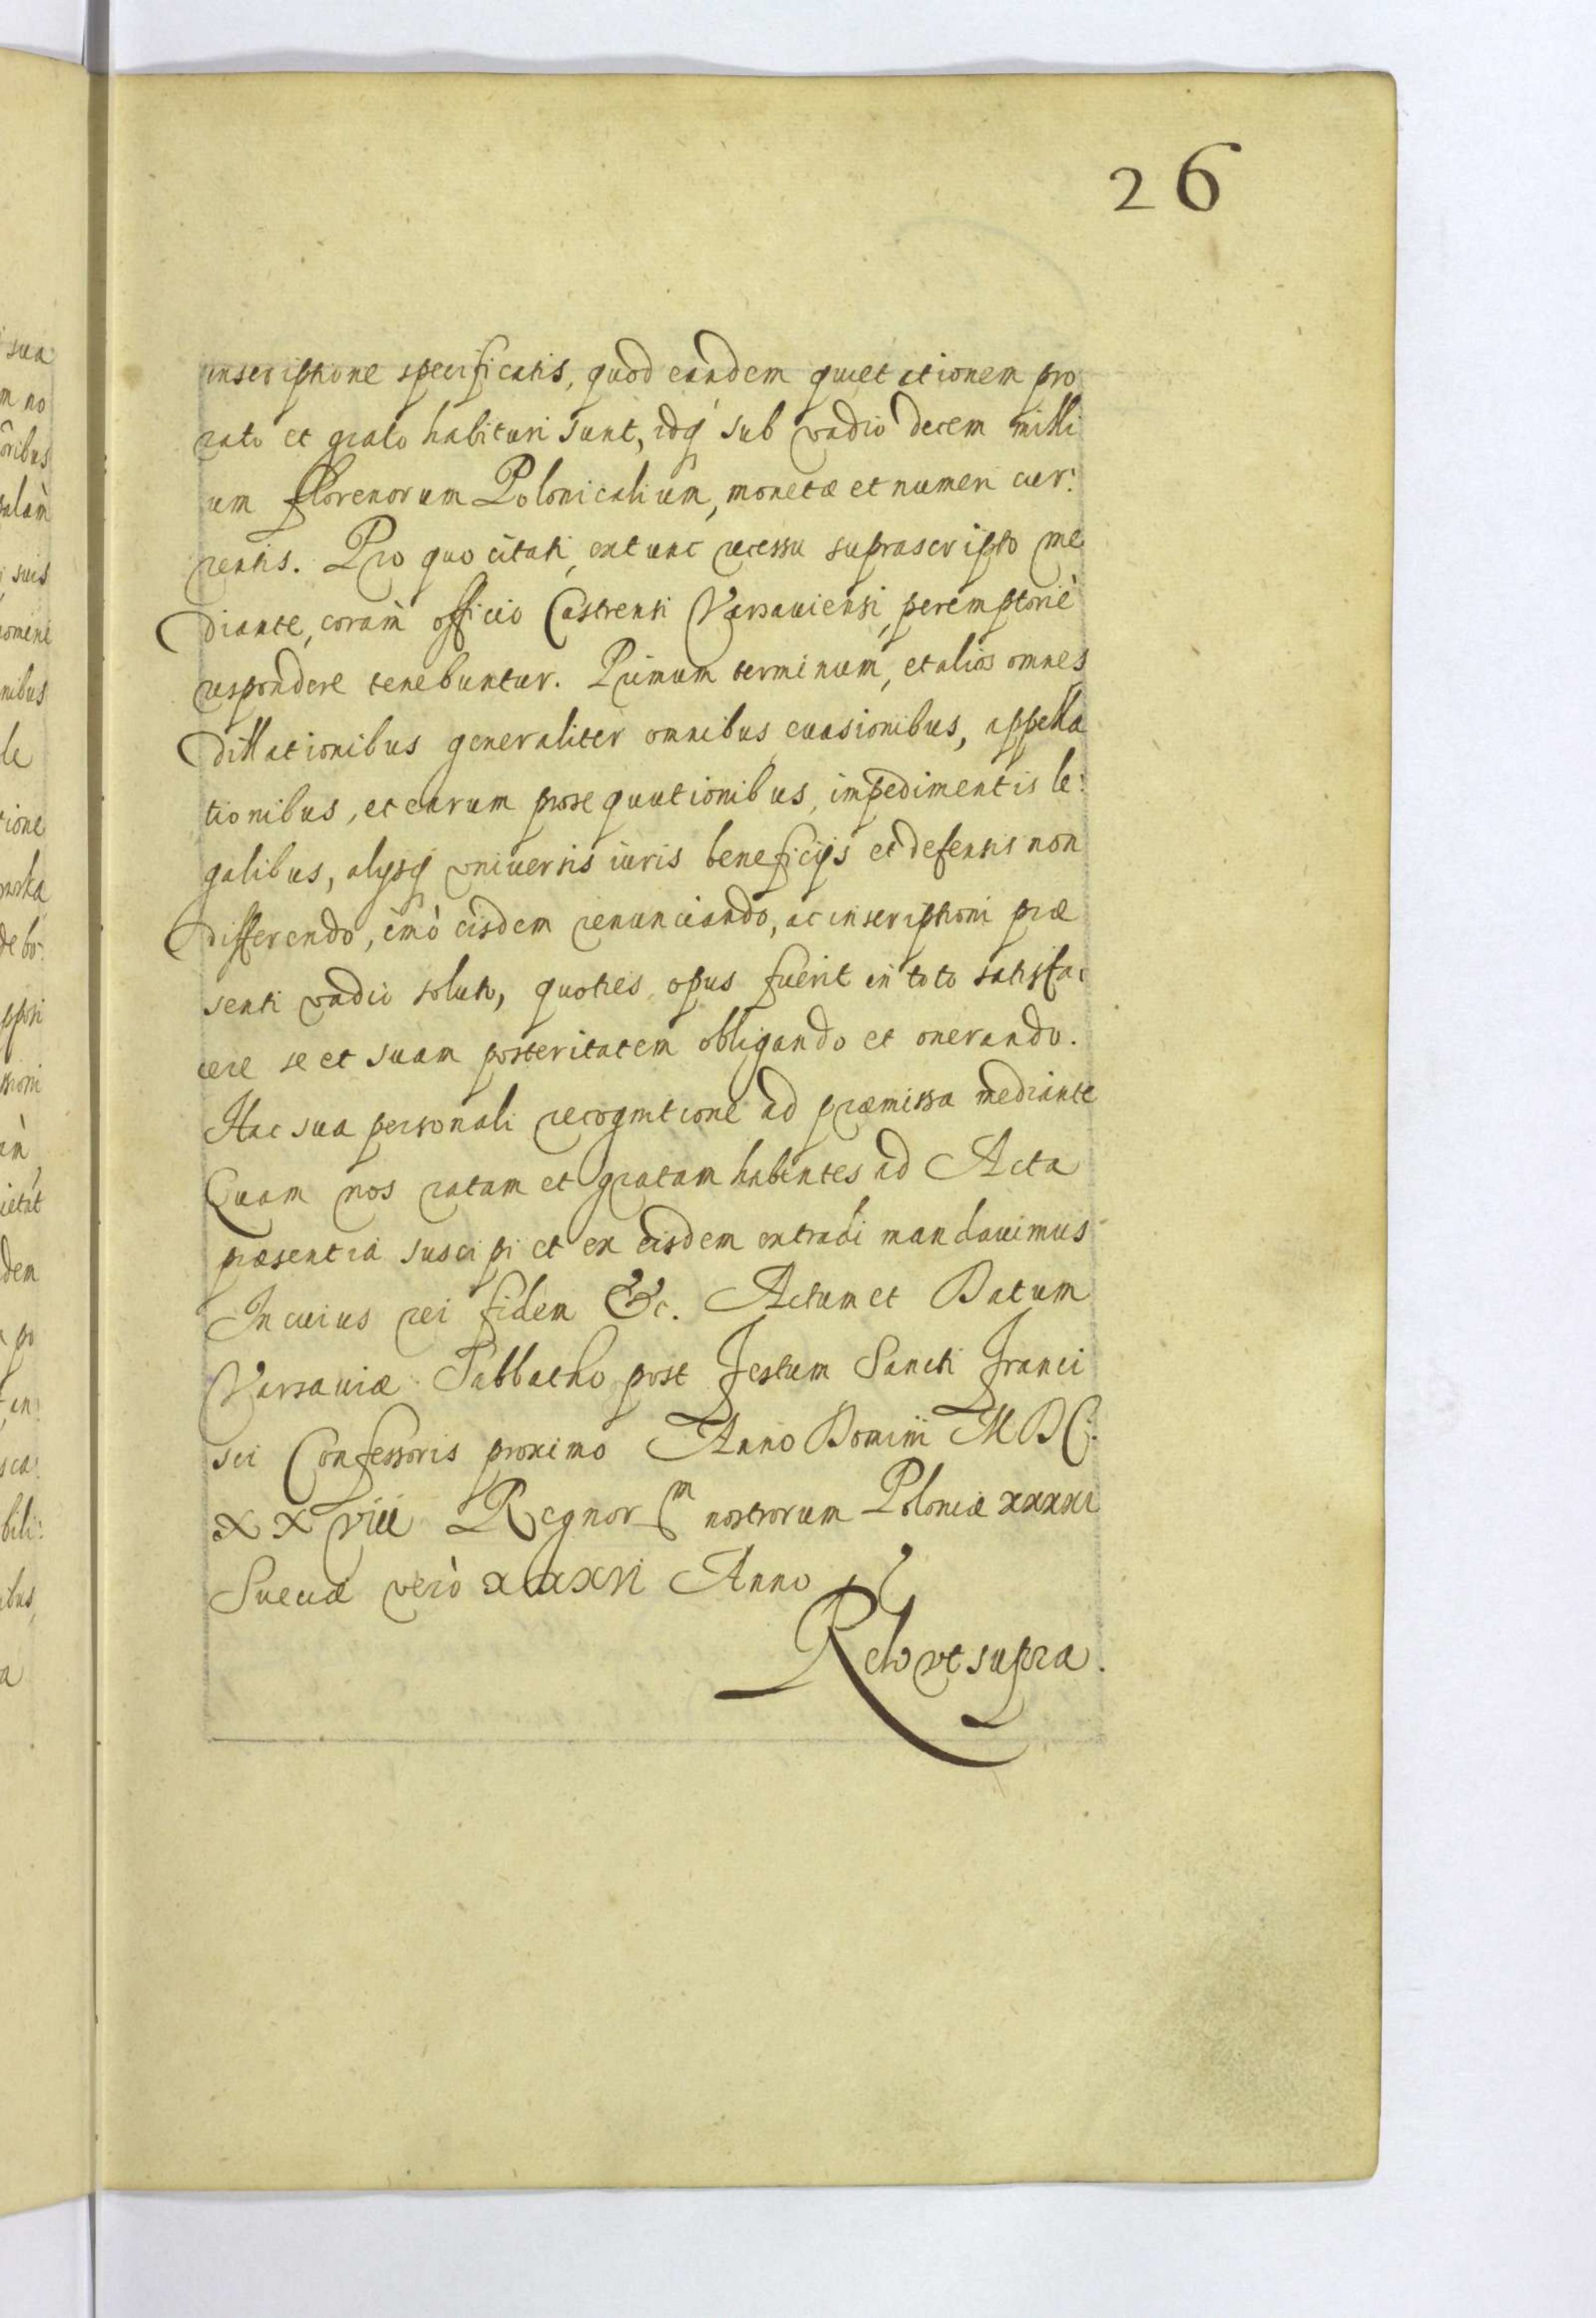 26
inscriptione specificatis, quod eandem quietationem pro
rato et grato habituri sunt, idq́ sub vadio decem milli
um florenorum Polonicalium, monetæ et numeri cur:
rentis. Pro quo citati, extunc recessu suprascripto me
diante, coràm officio Castrensi Varsauiensi, peremptoriè
respondere tenebuntur. Primum terminum, et alios omnes
dillationibus generaliter omnibus euasionibus, appella
tionibus, et earum prosequutionibus, impedimentis le:
galibus, alysq vniuersis iuris beneficijs et defensis non
differendo, imò eisdem renunciando, ac inscriptioni præ
senti vadii soluto, quoties opus fuerit in toto satisfa:
cere se et suam posteritatem obligando et onerando.
Hac sua personali recognitione ad præmissa mediante
Quam nos ratam et gratam habentes ad Acta
præsentia suscipi et ex eisdem extradi mandauimus
In cuius rei fidem &c. Actum et Datum
Varsauiæ Sabbatho post Festum Sancti Franci
sci Confessoris proximo Anno Domini MDC.
XXviii Regnor͠m nostrorum Poloniæ xxxxi
Sueciæ verò xxxvi Anno
Relo vt supra.